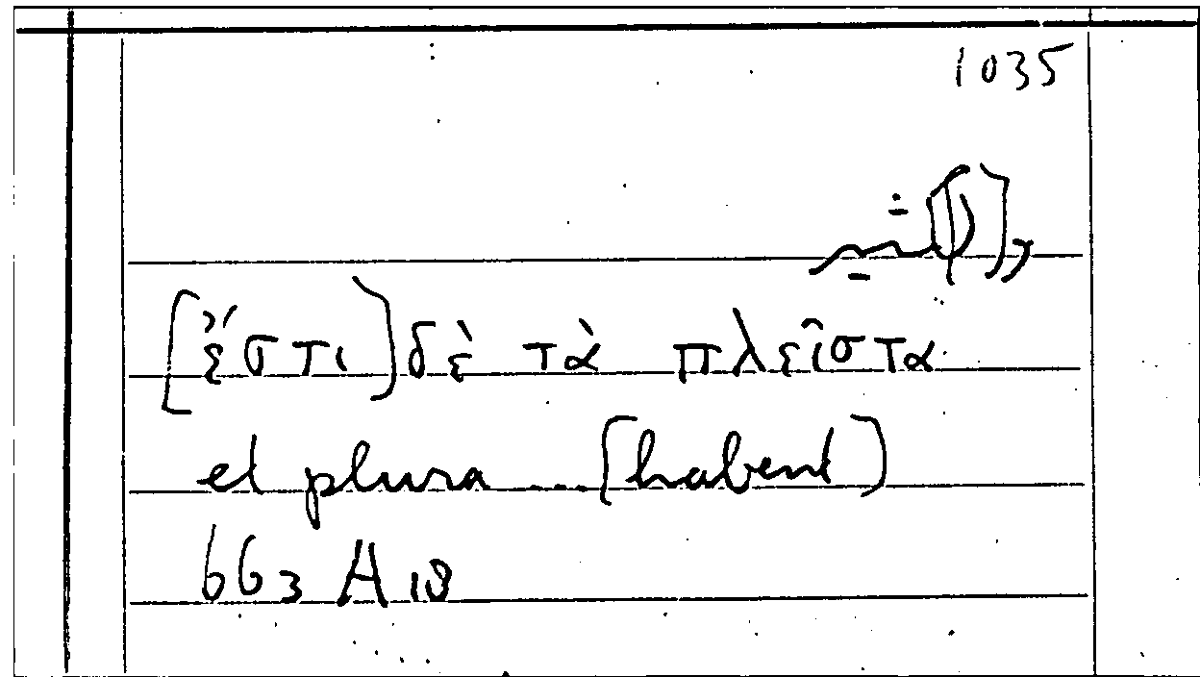 1035
[ἔστι] δὲ τὰ πλεῖστα
et plura .... [habent]
663 A 18